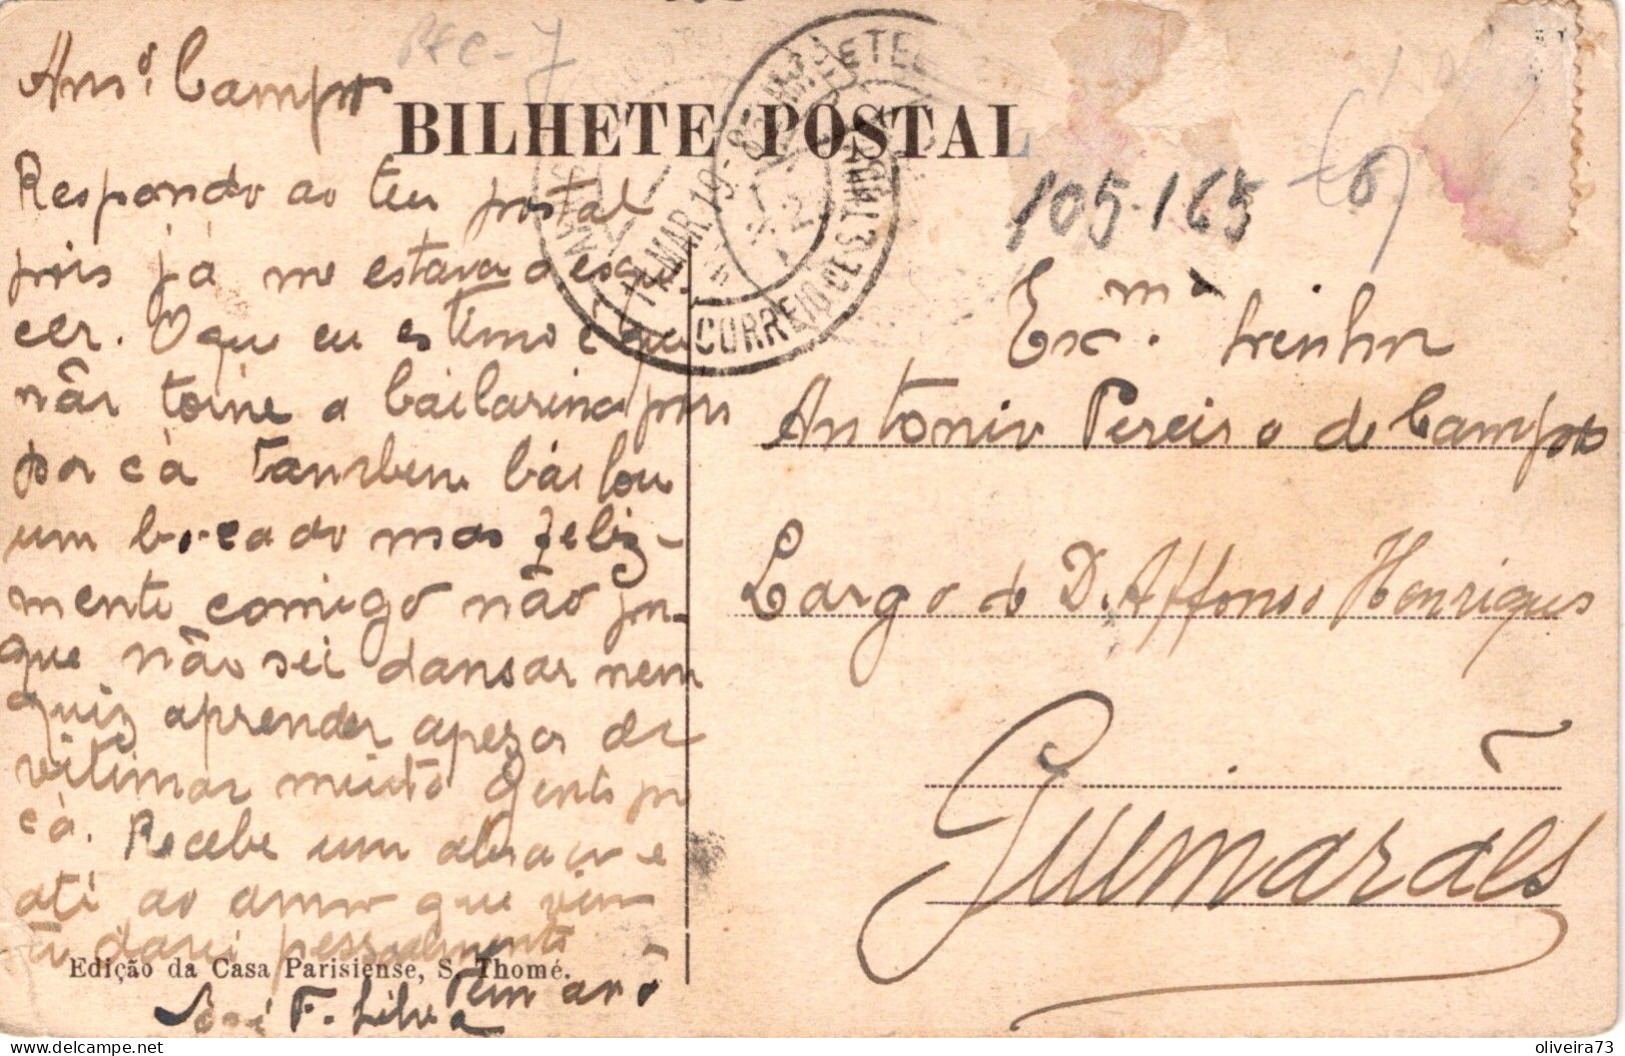 BILHETE POSTAL
105-165
Am.º Campos
Respondo ao teu postal
pois já me estava a esque
cer. O que eu estimo é que
não toine a bailarina pois
por cá tambem bailou
um bocado mas feliz-
mente comigo não por-
que não sei dansar nem
quiz aprender apezar de
vitimar muita gente por
cá. Recebe um abraço e
até ao anno que vem
te darei pessoalmente
José F. Silva
Ex.mº Senhor
Antonio Pereira de Campos
Largo de D. Affonso Henriques
Guimarães
CORREIO DE S. THOMÉ
11.MAR.19
Edição da Casa Parisiense, S. Thomé.
oliveira73